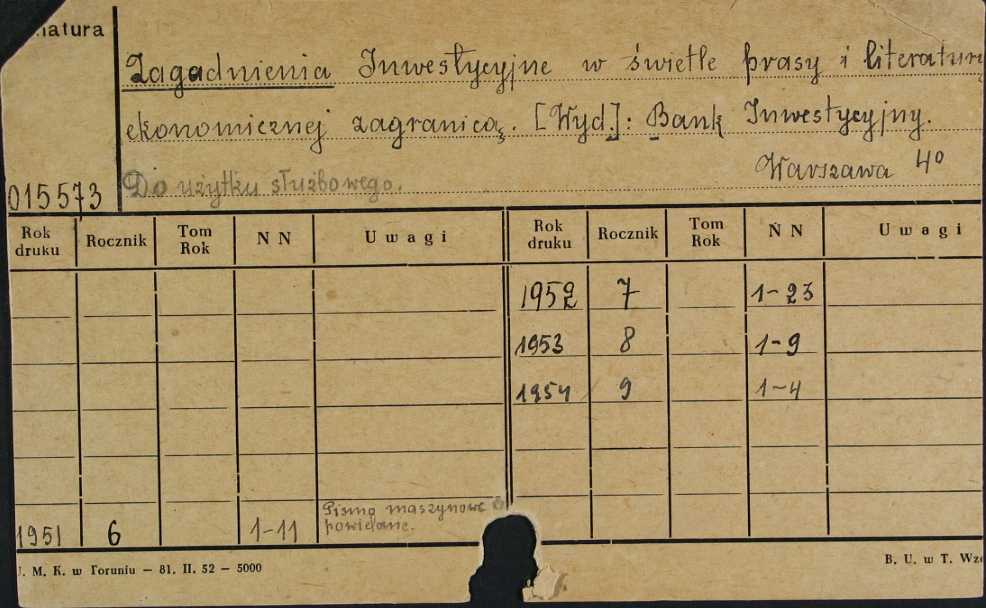 natura
Zagadnienia Inwestycyjne w świetle prasy i literatury
ekonomicznej zagranicą. [Wyd.]: Bank Inwestycyjny.
Warszawa 4°
015573 Do użytku służbowego.
Rok druku Rocznik Tom Rok N N Uwagi Rok druku Rocznik Tom Rok N N Uwagi
1952 7 1-23
1953 8 1-9
1954 9 1-4
1951 6 1-11 Pismo maszynowe powielane.
U. M. K. w Toruniu — 81. II. 52 — 5000 B. U. w T. Wzó